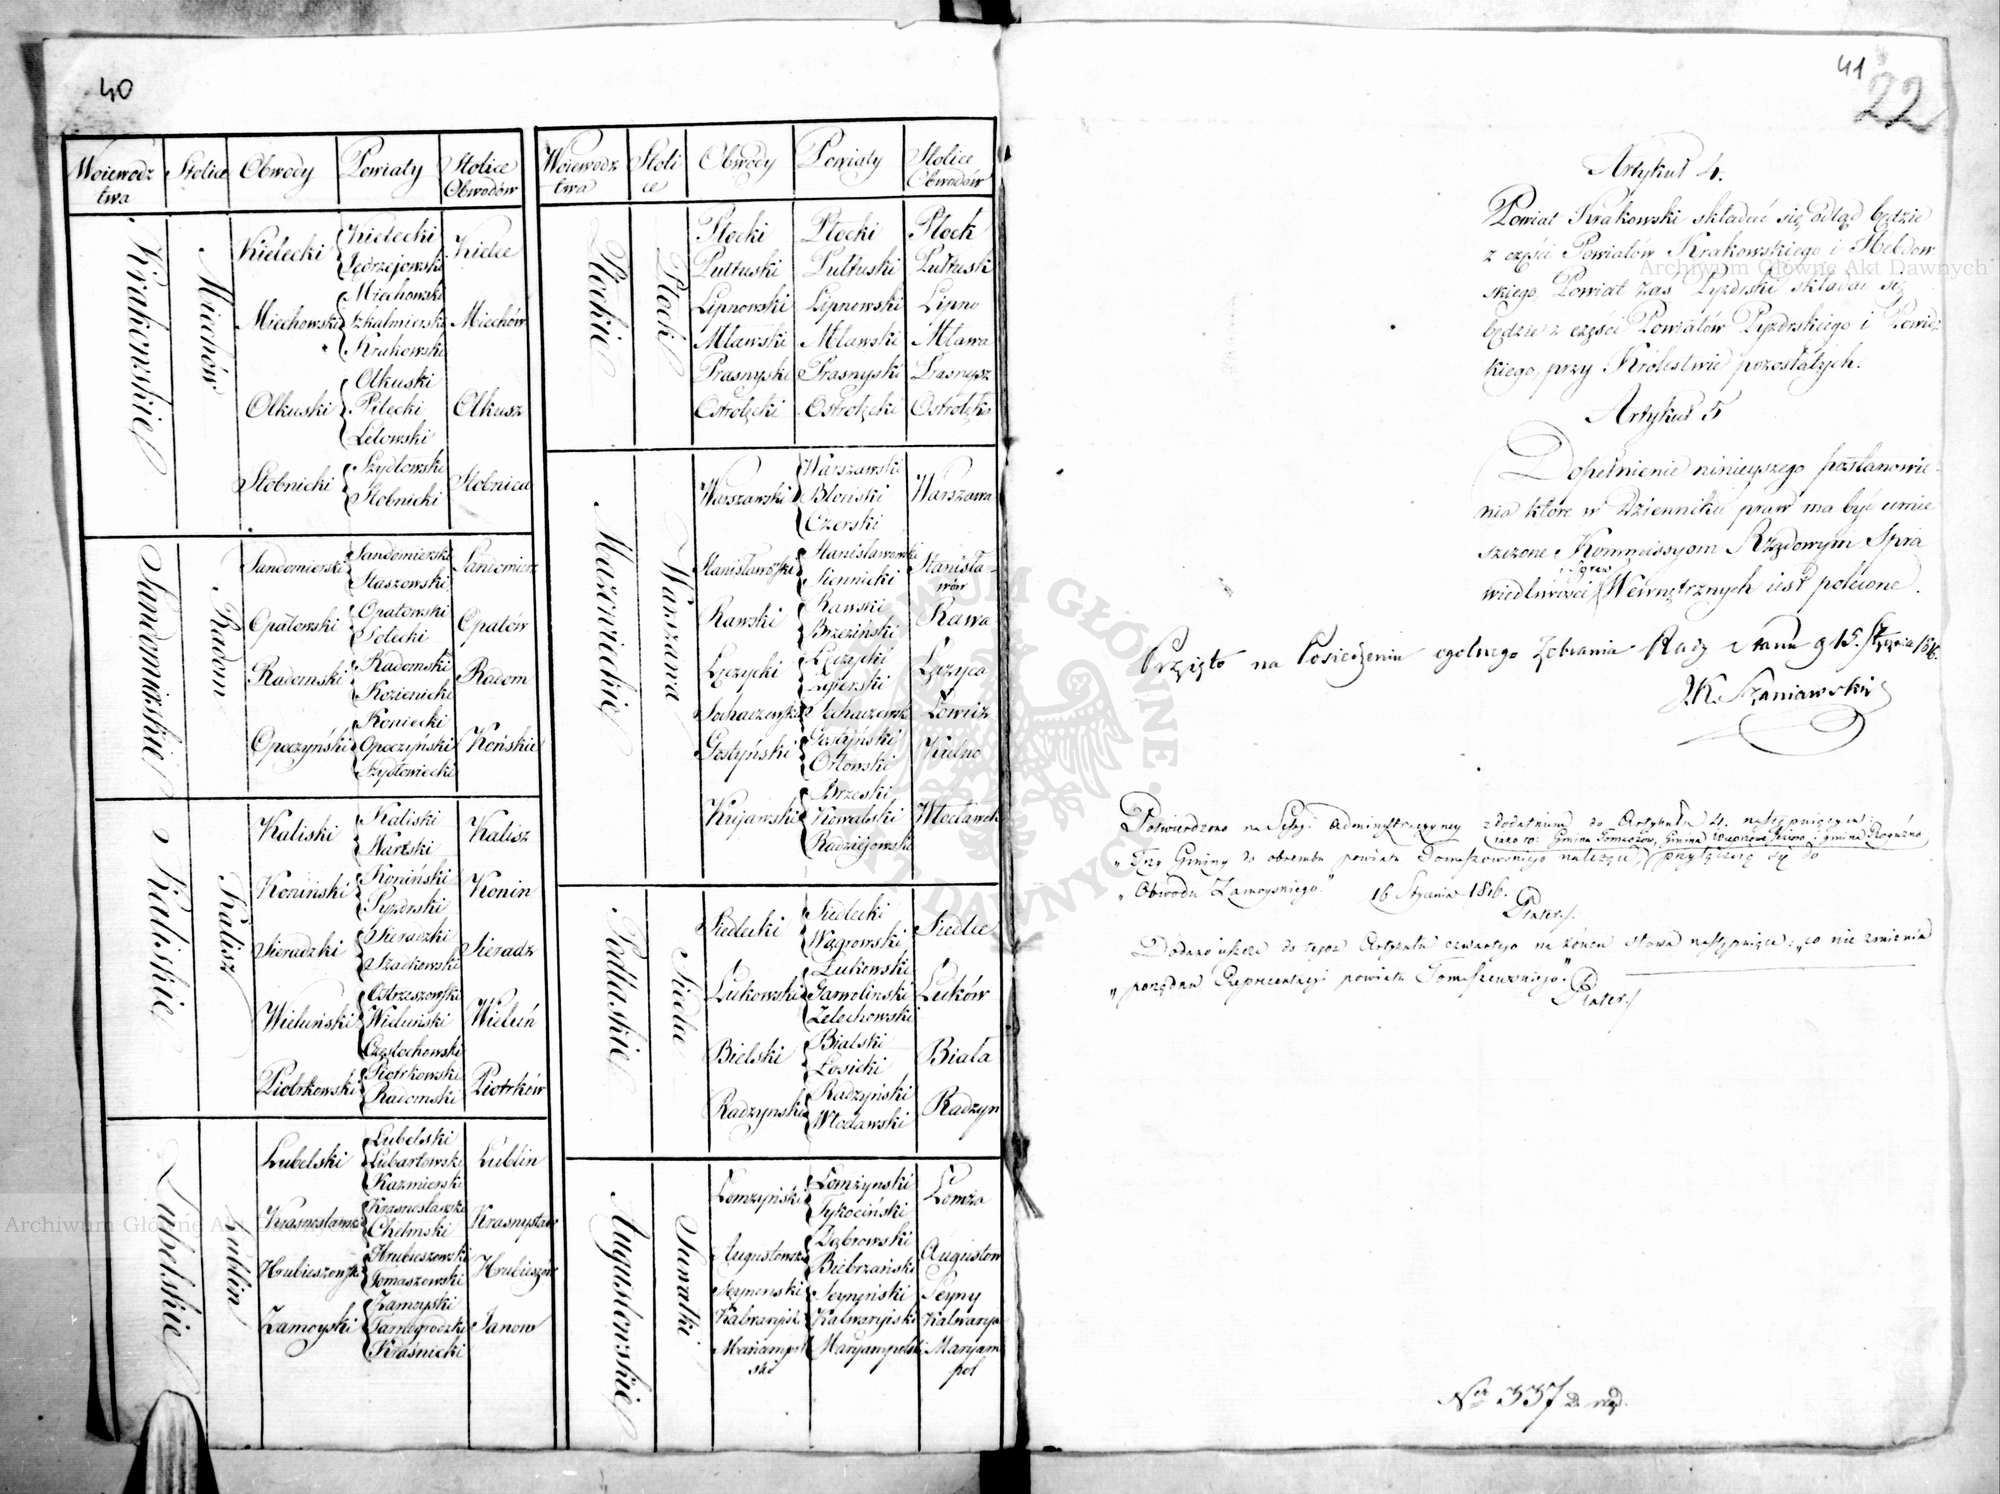 40
Woiewodz
twa
Stolice
Obwody
Powiaty
Stolice
Obwodów
Krakowskie
Miechów
Kielecki
Kielecki
Jędrzejowski
Kielce
Miechowski
Miechowski
Szkalmierski
Krakowski
Miechów
Olkuski
Olkuski
Pilecki
Lelowski
Olkusz
Stobnicki
Szydłowski
Stobnicki
Stobnica
Sandomirskie
Radom
Sandomierski
Sandomierski
Staszowski
Sandomierz
Opatowski
Opatowski
Solecki
Opatów
Radomski
Radomski
Kozienicki
Radom
Opoczyński
Koniecki
Opoczyński
Szydłowiecki
Końskie
Kaliskie
Kalisz
Kaliski
Kaliski
Wartski
Kalisz
Koniński
Koniński
Pyzdrski
Konin
Sieradzki
Sieradzki
Szadkowski
Sieradz
Wieluński
Ostrzeszowski
Wieluński
Częstochowski
Wieluń
Piotrkowski
Piotrkowski
Radomski
Piotrków
Lubelskie
Lublin
Lubelski
Lubelski
Lubartowski
Kazmierski
Lublin
Krasnostawski
Krasnostawski
Chełmski
Krasnystaw
Hrubieszowski
Hrubieszowski
Tomaszowski
Hrubieszów
Zamoyski
Zamoyski
Tarnogrodzki
Kraśnicki
Janow
Woiewodz
twa
Stoli
ce
Obwody
Powiaty
Stolice
Obwodów
Płockie
Płock
Płocki
Płocki
Płock
Pułtuski
Pułtuski
Pułtusk
Lipnowski
Lipnowski
Lipno
Mławski
Mławski
Mława
Prasnyski
Prasnyski
Prasnysz
Ostrołęcki
Ostrołęcki
Ostrołęka
Mazowieckie
Warszawa
Warszawski
Warszawski
Błoński
Czerski
Warszawa
Stanisławowski
Stanisławowski
Siennicki
Stanisła-
wów
Rawski
Rawski
Brzeziński
Rawa
Łęczycki
Łęczycki
Zgierski
Łęczyca
Sochaczewski
Sochaczewski
Łowicz
Gostyński
Gostyński
Orłowski
Kutno
Kujawski
Brzeski
Kowalski
Radziejowski
Włocławek
Podlaskie
Siedlce
Siedlecki
Siedlecki
Węgrowski
Siedlce
Łukowski
Łukowski
Garwoliński
Żelechowski
Łuków
Bielski
Bialski
Łosicki
Biała
Radzynski
Radzyński
Włodawski
Radzyn
Augustowskie
Suwałki
Łomżyński
Łomżynski
Tykociński
Łomża
Augustowski
Dąbrowski
Biebrzański
Augustow
Seynenski
Seyneński
Seyny
Kalwaryiski
Kalwaryiski
Kalwarya
Maryampol
ski
Maryampolski
Maryam
pol
41
22
Artykuł 4.
Powiat Krakowski składać się odtąd będzie
z części Powiatów Krakowskiego i Hebdow
skiego, Powiat zaś Pyzdrski składać się
będzie z części Powiatów Pyzdrskiego i Powidz
kiego, przy Królestwie pozostałych.
Artykuł 5
Dopełnienie ninieyszego postanowie-
nia które w Dzienniku praw ma być umie
szczone Kommissyom Rządowym Spra
wiedliwości i Spraw Wewnętrznych iest polecone.
Przyięto na Posiedzeniu ogolnego Zebrania Rady Stanu d. 15. Stycznia 1816.
J.K. Szaniawski
Potwierdzono na Sessyi Administracyiney z dodatkiem do Artykułu 4. następuiącym:
„Trzy Gminy do obrembu powiatu Tomaszowskiego należące, (iako to: Gmina Tomaszow, Gmina i gmina Rogóźno) przyłączaią się do
„Obwodu Zamoyskiego." 16 Stycznia 1816.
Plater.
Dodano ieszcze do tegoż Artykułu czwartego na końcu słowa następuiące: „co nie zmienia
„porządku Reprezentacyi powiatu Tomaszowskiego."
Plater.
Nr 337 D. rząd.
Archiwum Główne Akt Dawnych
Archiwum Główne Akt
ARCHIWUM GŁÓWNE AKT DAWNYCH